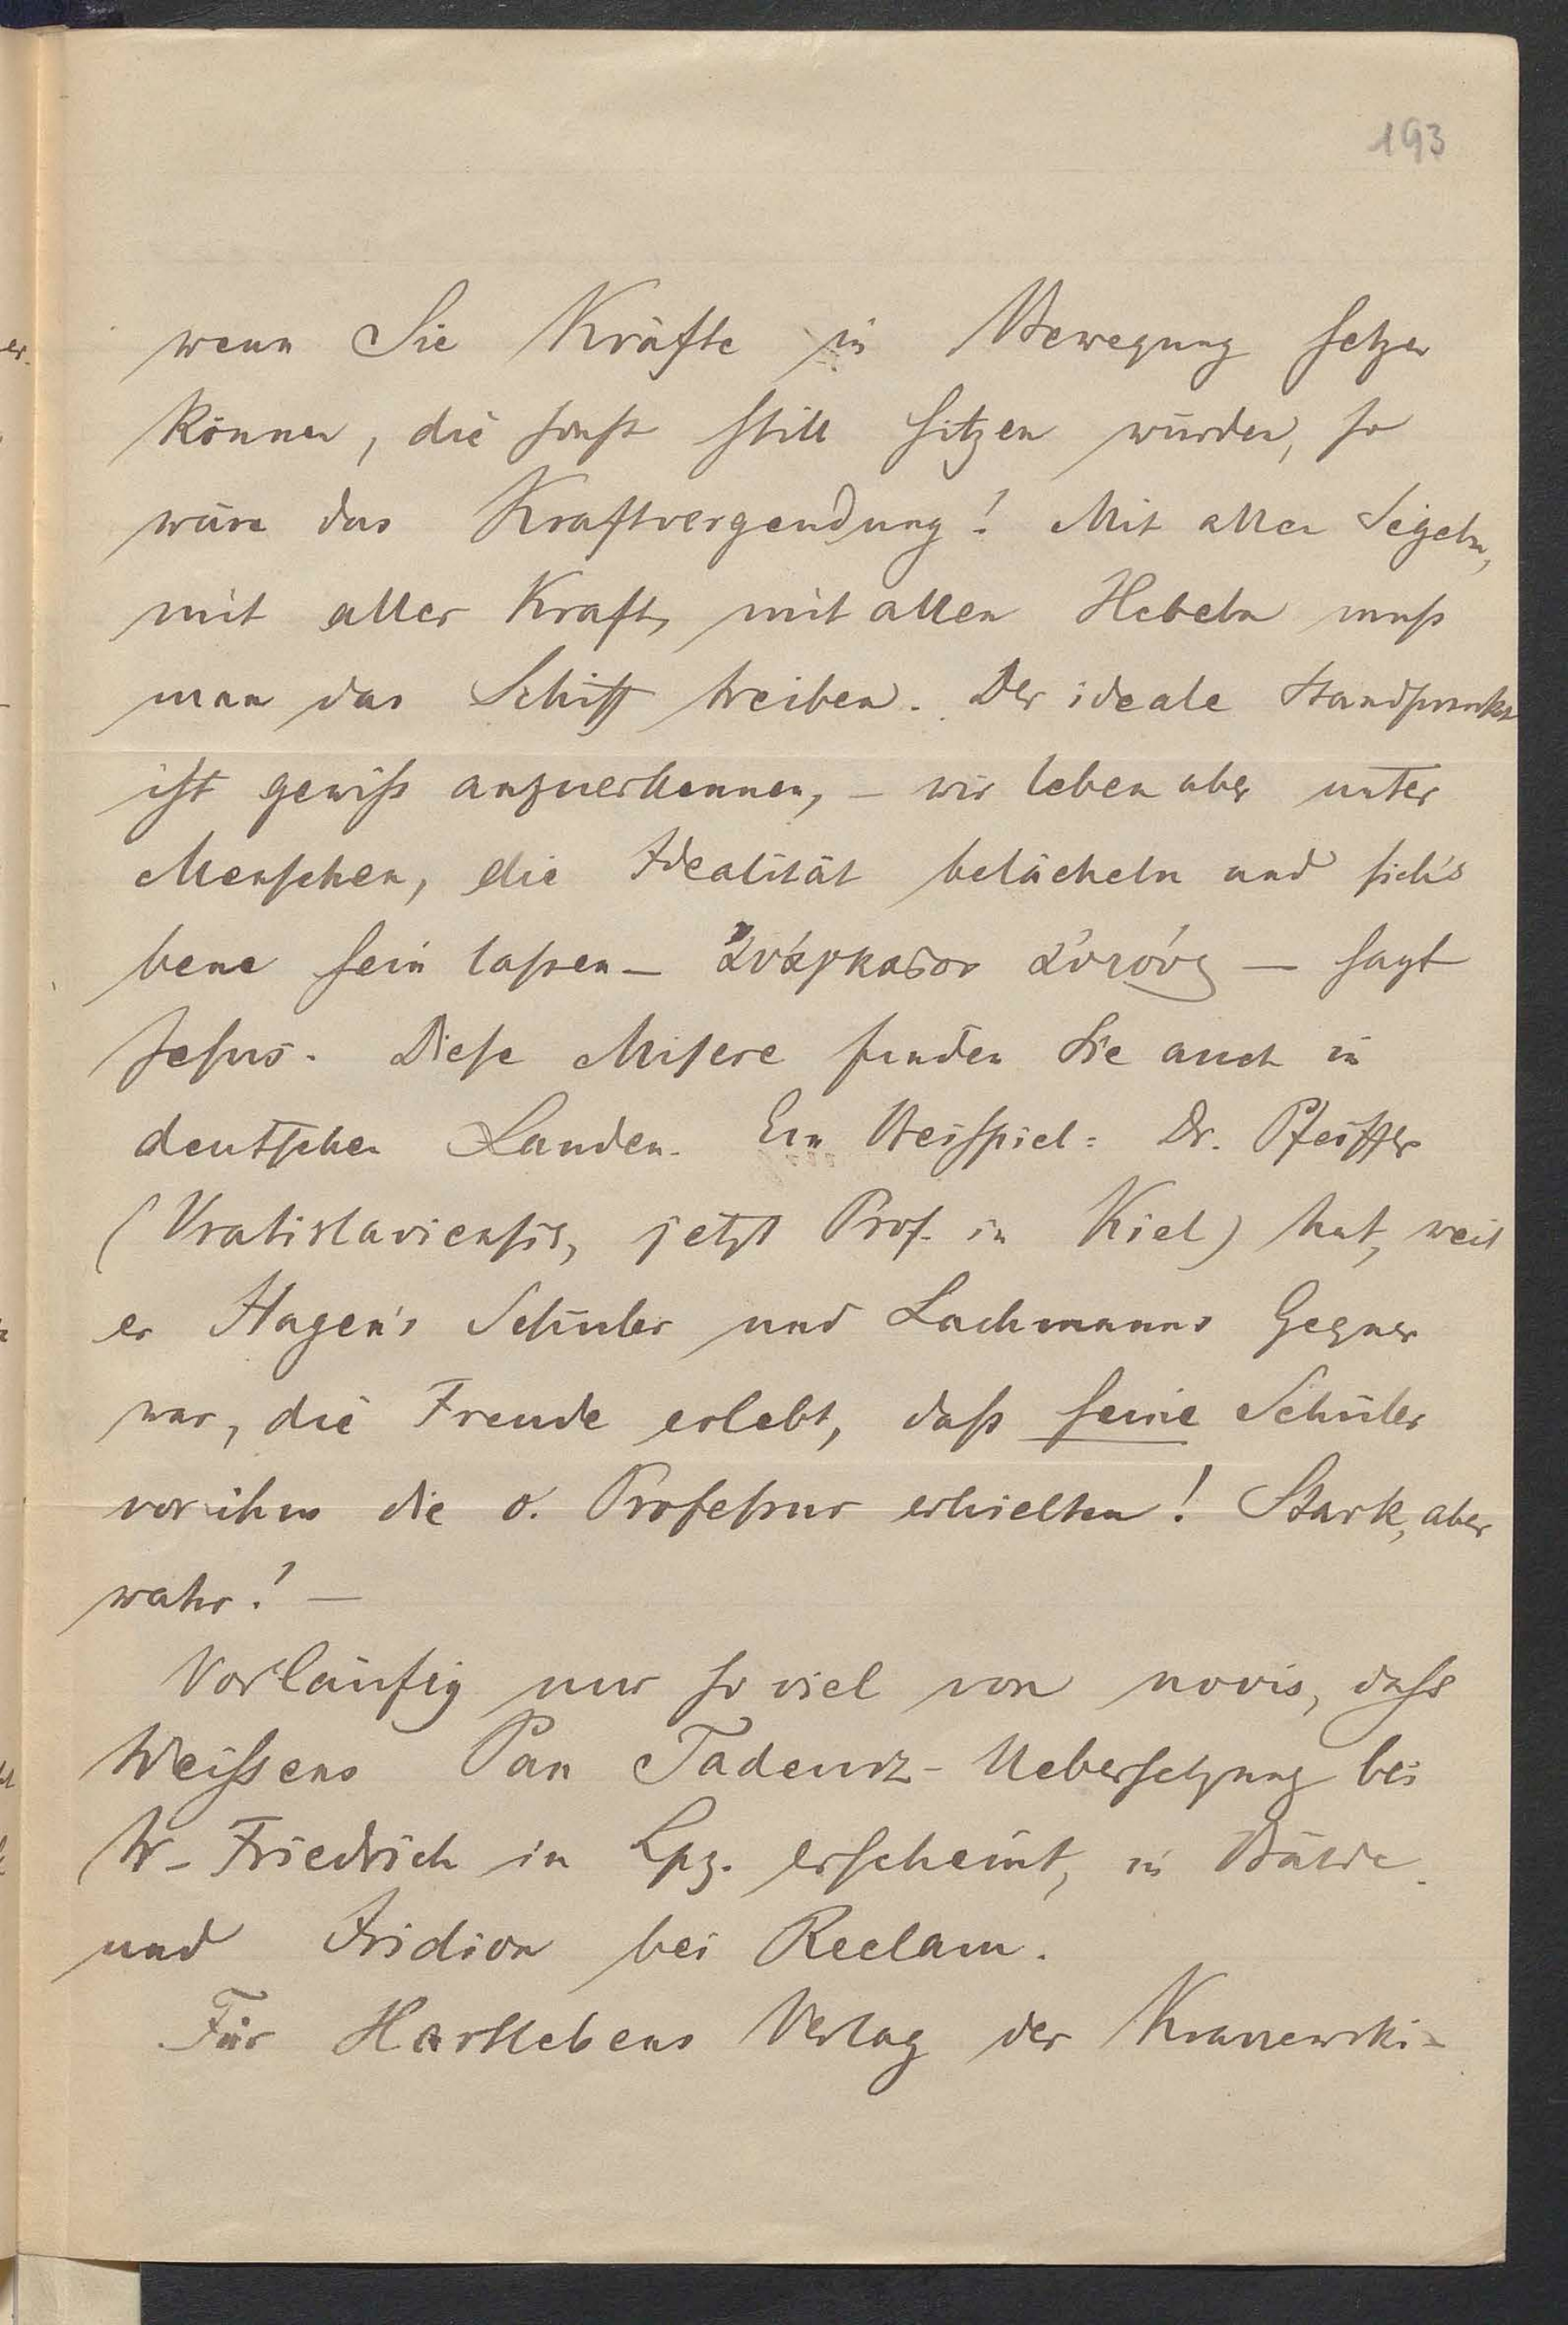 193
wenn Sie Kräfte in Bewegung setzen
können, die sonst still sitzen würden, so
wäre das Kraftvergeudung! Mit allen Segeln,
mit aller Kraft, mit allen Hebeln muß
man das Schiff treiben. Der ideale Standpunkt
ist gewiß anzuerkennen, – wir leben aber unter
Menschen, die Idealität belächeln und sich's
bene sein laßen – ἀνάγκασον αὐτούς – sagt
Jesus. Diese Misere finden Sie auch in
deutschen Landen. Ein Beispiel: Dr. Pfeiffer
(Vratislaviensis, jetzt Prof. in Kiel) hat, weil
er Hagen's Schüler und Lachmanns Gegner
war, die Freude erlebt, daß seine Schüler
vor ihm die o. Professur erhielten! Stark, aber
wahr! –
Vorläufig nur so viel von novis, daß
Weissens Pan Tadeusz-Uebersetzung bei
W. Friedrich in Lpz. erscheint, in Bälde.
und Iridion bei Reclam.
Für Hartlebens Verlag der Kraszewski-